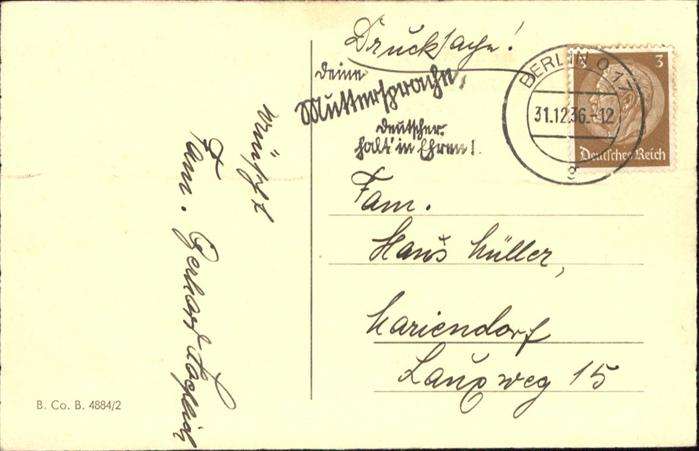 Drucksache!
Deine
Muttersprache,
Deutscher,
halt' in Ehren!
BERLIN O 17
31.12.36.-12
g
3
Deutsches Reich
Fam.
Hans Müller,
Mariendorf
weg 15
wünscht
Fam. Gerhard
B. Co. B. 4884/2